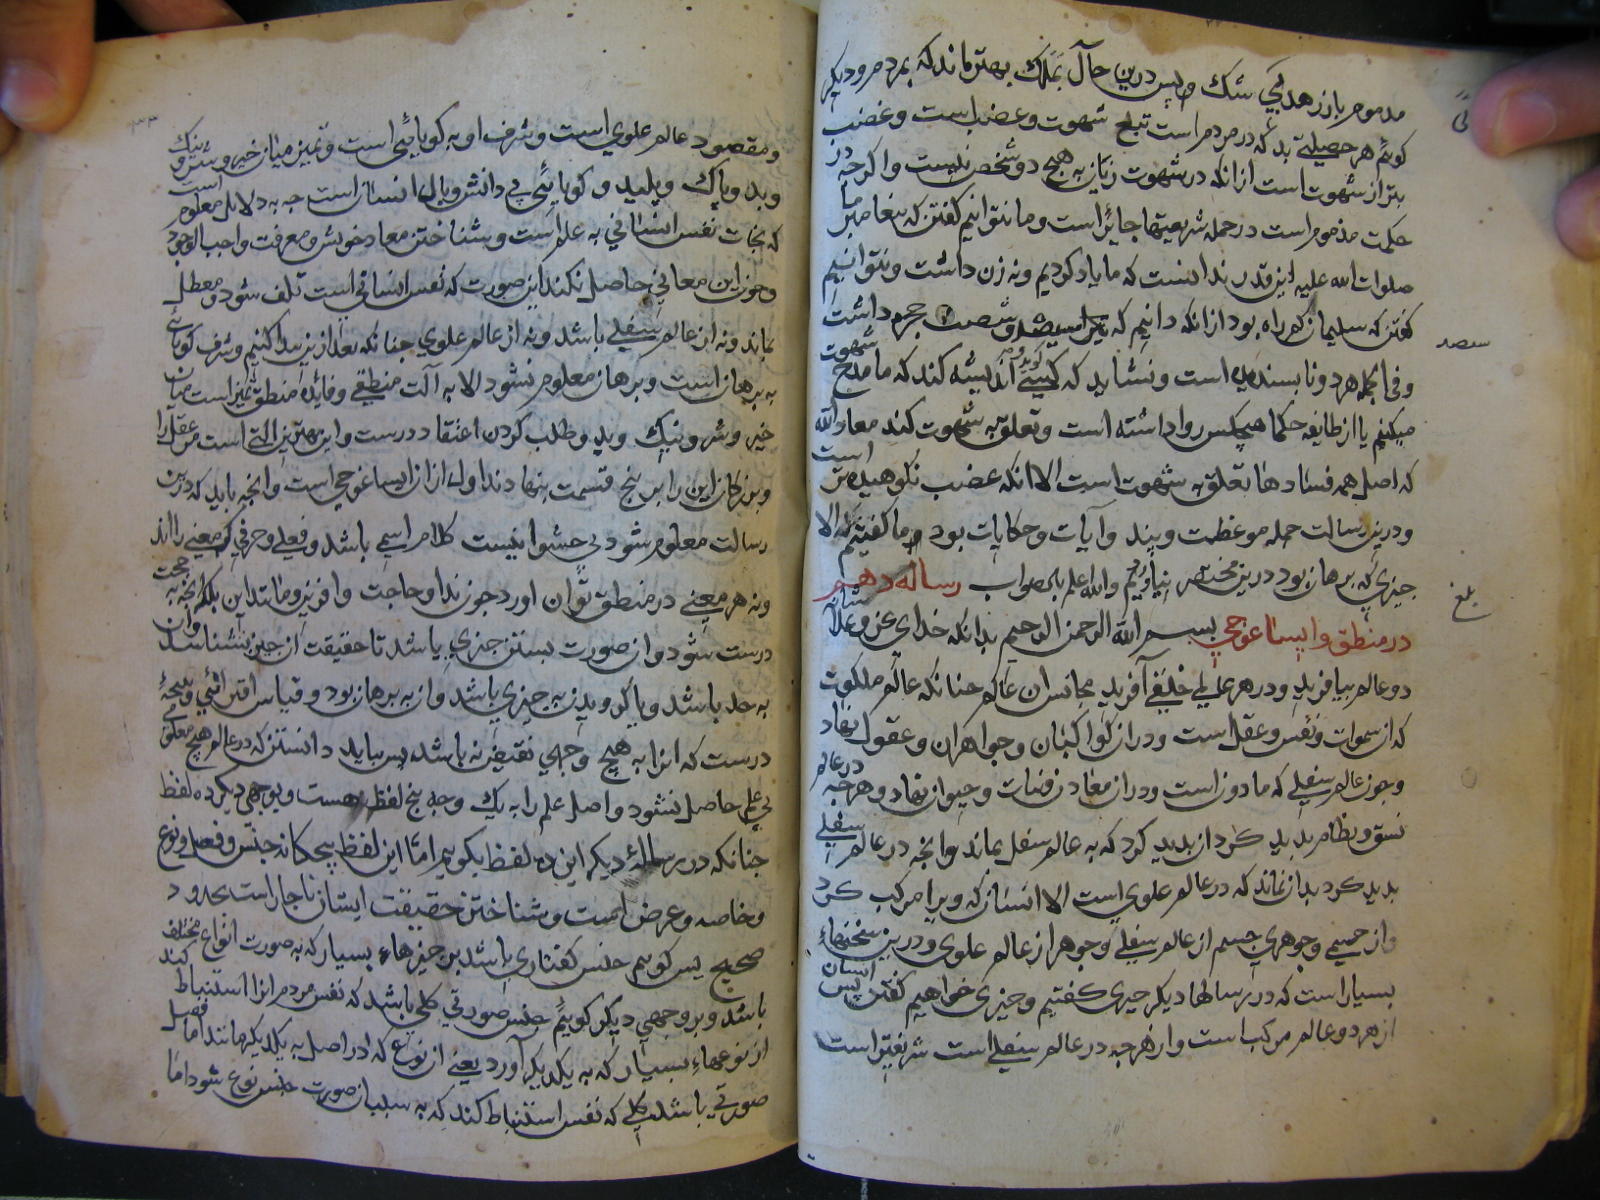 مذموم باز زهد بی شک و پس درین حال بملک بهتر ماند که بمردم و دیگر
کوئیم هر خصیلتی بد که در مردم است تبع شهوت و غضب است و غضب
بتر از شهوت است ازانکه در شهوت زیان به هیچ دو شخص نیست و اکرچه در
حکمت مذموم است در جمله شریعتها جایز است و ما نتوانیم کفتن که پیغامبر ما
صلوات الله علیه این قدر ندانست که ما یاد کردیم و نه زن داشت و نتوانیم
کفتن که سلیمان کم راه بود ازانکه دانیم که و شصت حجره داشت
سیصد
و فی الجمله هر دو ناپسندیده است و نشاید که کسی اندیشه کند که ما مدح شهوت
میکنیم یا از طایفه حکما هیچکس روا داشته است و تعلق به شهوت کند معاذ الله
که اصل همه فسادها تعلق به شهوت است الا انکه غضب نکوهیده تر است
و درین رسالت جمله موعظت و پند و آیات و حکایات بود و ما کفتیم که الا
چیزی که برهان بود درین مختصر نیاوریم والله اعلم بالصواب رساله دهم
بلغ
در منطق و ایساغوجی بسم الله الرحمن الرحیم بدانکه خدای عز و علا
دو عالم بیافرید و در هر عالمی خلقی آفرید مجانس ان عالم چنانکه عالم ملکوت
که از سموات و نفس و عقل است و دران کواکبان و جواهران و عقول نهاد
و چون عالم سفلی که مادون است و دران معادن و نبات و حیوان نهاد و هرچه در عالم
نسق و نظام پدید کرد ان پدید کرد که به عالم سفل بماند و انچه در عالم سفلی
پدید کرد بدان ماند که در عالم علوی است الا انسان که ویرا مرکب کرد
و از جسمی و جوهری جسم از عالم سفلی و جوهر از عالم علوی و درین سخنهاء
بسیار است که در رسالها دیکر چیزی کفتیم و چیزی خواهیم کفتن پس انسان
از هر دو عالم مرکب است و از هرچه در عالم سفلی است شریفتر است
و مقصود عالم علوی است و شرف او به کویایی است و تمیز میان خیر و شر و نیک
و بد و پاک و پلید و کویایی بی دانش وبال انسان است چه به دلایل معلوم است
که نجات نفس انسانی به علم است و شناختن معاد خویش و معرفت واجب الوجود
و چون این معانی حاصل نکند این صورت که نفس انسانی است تلف شود و معطل
بماند و نه از عالم سفلی باشد و نه از عالم علوی چنانکه بعد ازین پیدا کنیم و شرف کویائی
به برهان است و برهان معلوم نشود الا به آلت منطقی و فایده منطق تمیز است میان
خیر و شر و نیک و بد و طلب کردن اعتقاد درست و این بهترین التی است مر عقل را
و بزرکان این را بر پنج قسمت بنهادند اول ازان ایساغوجی است و انچه باید که درین
رسالت معلوم شود بی حشو اینست کلام اسمی باشد و فعلی و حرفی کی معنی را اند
و نه هر معنی در منطق توان اورد چون ندا و حاجت و افرین و مانند این بلکه انچه به حجت
درست شود و ان صورت بستن چیزی باشد تا حقیقت ان چیز بشناسد و ان
به حد باشد و یا کرویدن به چیزی باشد و ان به برهان بود و قیاس اقترانی و نتیجهٔ
درست که انرا به هیچ وجهی نقیض نباشد پس بباید دانستن که در عالم هیچ معلومی
بی علم حاصل نشود و اصل علم را به یک وجه پنج لفظ هست و بوجهی دیکر ده لفظ
چنانکه در رسالهٔ دیکر این ده لفظ بکوییم اما این لفظ پنجکانه جنس و فصل و نوع
و خاصه و عرض است و شناختن حقیقت ایشان ناچار است بحدود
صحیح پس کوییم جنس کفتاری باشد بر چیزهاء بسیار که به صورت انواع مختلف
باشد و بر وجهی دیکر کوییم جنس صورتی کلی باشد که نفس مردم انرا استنباط کند
از نوعهاء بسیار که به یکدیکر آورد یعنی از نوع که در اصل به یکدیکر مانند اما فصل
صورتی باشد کلی که نفس استنباط کند که به سبب ان صورت جنس نوع شود اما